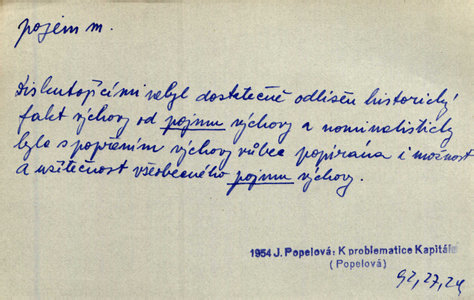 pojem m.
Diskutujícími nebyl dostatečně odlišen historický
fakt výchovy od pojmu výchovy a nominalisticky
byla s popřením výchovy vůbec popírána i možnost
a užitečnost všeobecného pojmu výchovy.
1954 J. Popelová: K problematice Kapitálu
(Popelová)
92,27,24